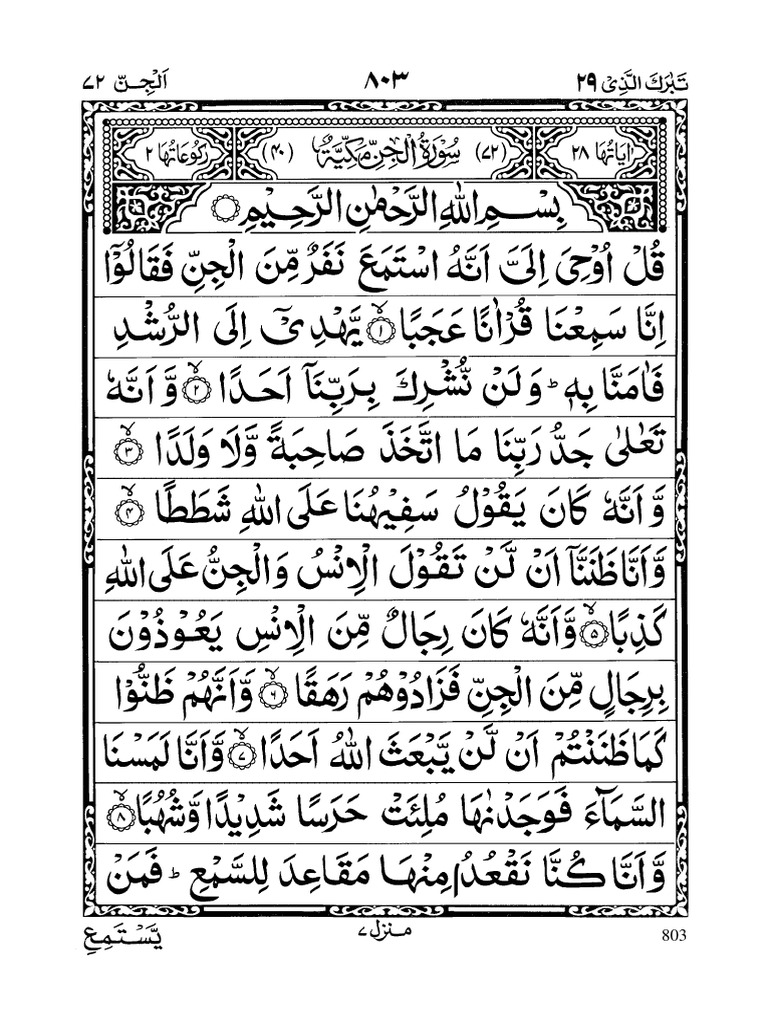 تَبٰرَكَ الَّذِیْ ۲۹ ۸۰۳ اَلْجِنّ ۷۲
اٰیَاتُهَا ۲۸ (۷۲) سُوْرَةُ الْجِنِّ مَكِّیَّةٌ (۴۰) رُكُوْعَاتُهَا ۲
بِسْمِ اللّٰهِ الرَّحْمٰنِ الرَّحِیْمِ
قُلْ اُوْحِیَ اِلَیَّ اَنَّهُ اسْتَمَعَ نَفَرٌ مِّنَ الْجِنِّ فَقَالُوْۤا
اِنَّا سَمِعْنَا قُرْاٰنًا عَجَبًا ۙ۱ یَّهْدِیْۤ اِلَی الرُّشْدِ
فَاٰمَنَّا بِهٖ ؕ وَلَنْ نُّشْرِكَ بِرَبِّنَاۤ اَحَدًا ۙ۲ وَّاَنَّهٗ
تَعٰلٰی جَدُّ رَبِّنَا مَا اتَّخَذَ صَاحِبَةً وَّلَا وَلَدًا ۙ۳
وَّاَنَّهٗ كَانَ یَقُوْلُ سَفِیْهُنَا عَلَی اللّٰهِ شَطَطًا ۙ۴
وَّاَنَّا ظَنَنَّاۤ اَنْ لَّنْ تَقُوْلَ الْاِنْسُ وَالْجِنُّ عَلَی اللّٰهِ
كَذِبًا ۙ۵ وَّاَنَّهٗ كَانَ رِجَالٌ مِّنَ الْاِنْسِ یَعُوْذُوْنَ
بِرِجَالٍ مِّنَ الْجِنِّ فَزَادُوْهُمْ رَهَقًا ۙ۶ وَّاَنَّهُمْ ظَنُّوْا
كَمَا ظَنَنْتُمْ اَنْ لَّنْ یَّبْعَثَ اللّٰهُ اَحَدًا ۙ۷ وَّاَنَّا لَمَسْنَا
السَّمَآءَ فَوَجَدْنٰهَا مُلِئَتْ حَرَسًا شَدِیْدًا وَّشُهُبًا ۙ۸
وَّاَنَّا كُنَّا نَقْعُدُ مِنْهَا مَقَاعِدَ لِلسَّمْعِ ؕ فَمَنْ
803 منزل ۷ یَّسْتَمِعِ